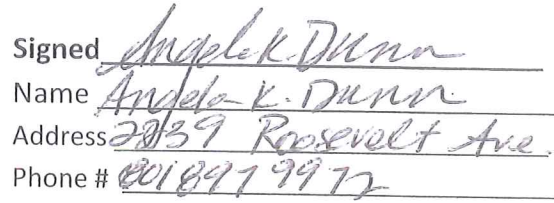 Signed Angela K Dunn
Name Angela K. Dunn
Address 2839 Roosevelt Ave.
Phone # 801 897 9972